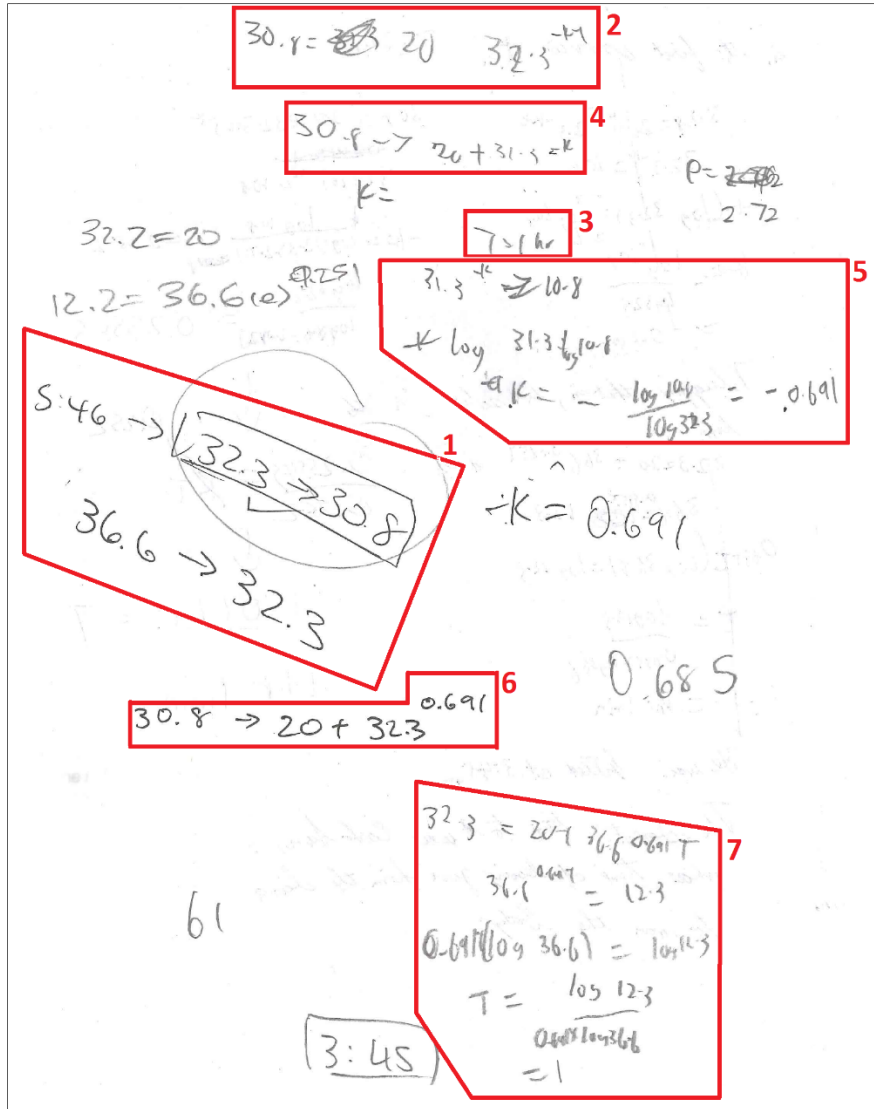 30.8 = 20 32.3^-k1
2
4
30.8 -> 20 + 31.3 = k
K =
P =
2.72
3
32.2 = 20
T > 1 hr
5
12.2 = 36.6(e)^0.251
31.3^-k = 10.8
-k log 31.3 log 10.8
K = - log 10.8 / log 323 = -.0.691
1
5:46 → 32.3 → 30.8
36.6 → 32.3
÷K = 0.691
0.685
6
30.8 → 20 + 32.3^0.691
7
32.3 = 20+ 36.6^0.691 T
36.6^0.691T = 12.3
0.691T(log 36.6) = log 12.3
T = log 12.3 / 0.691 x log 36.6
= 1
61
3:45